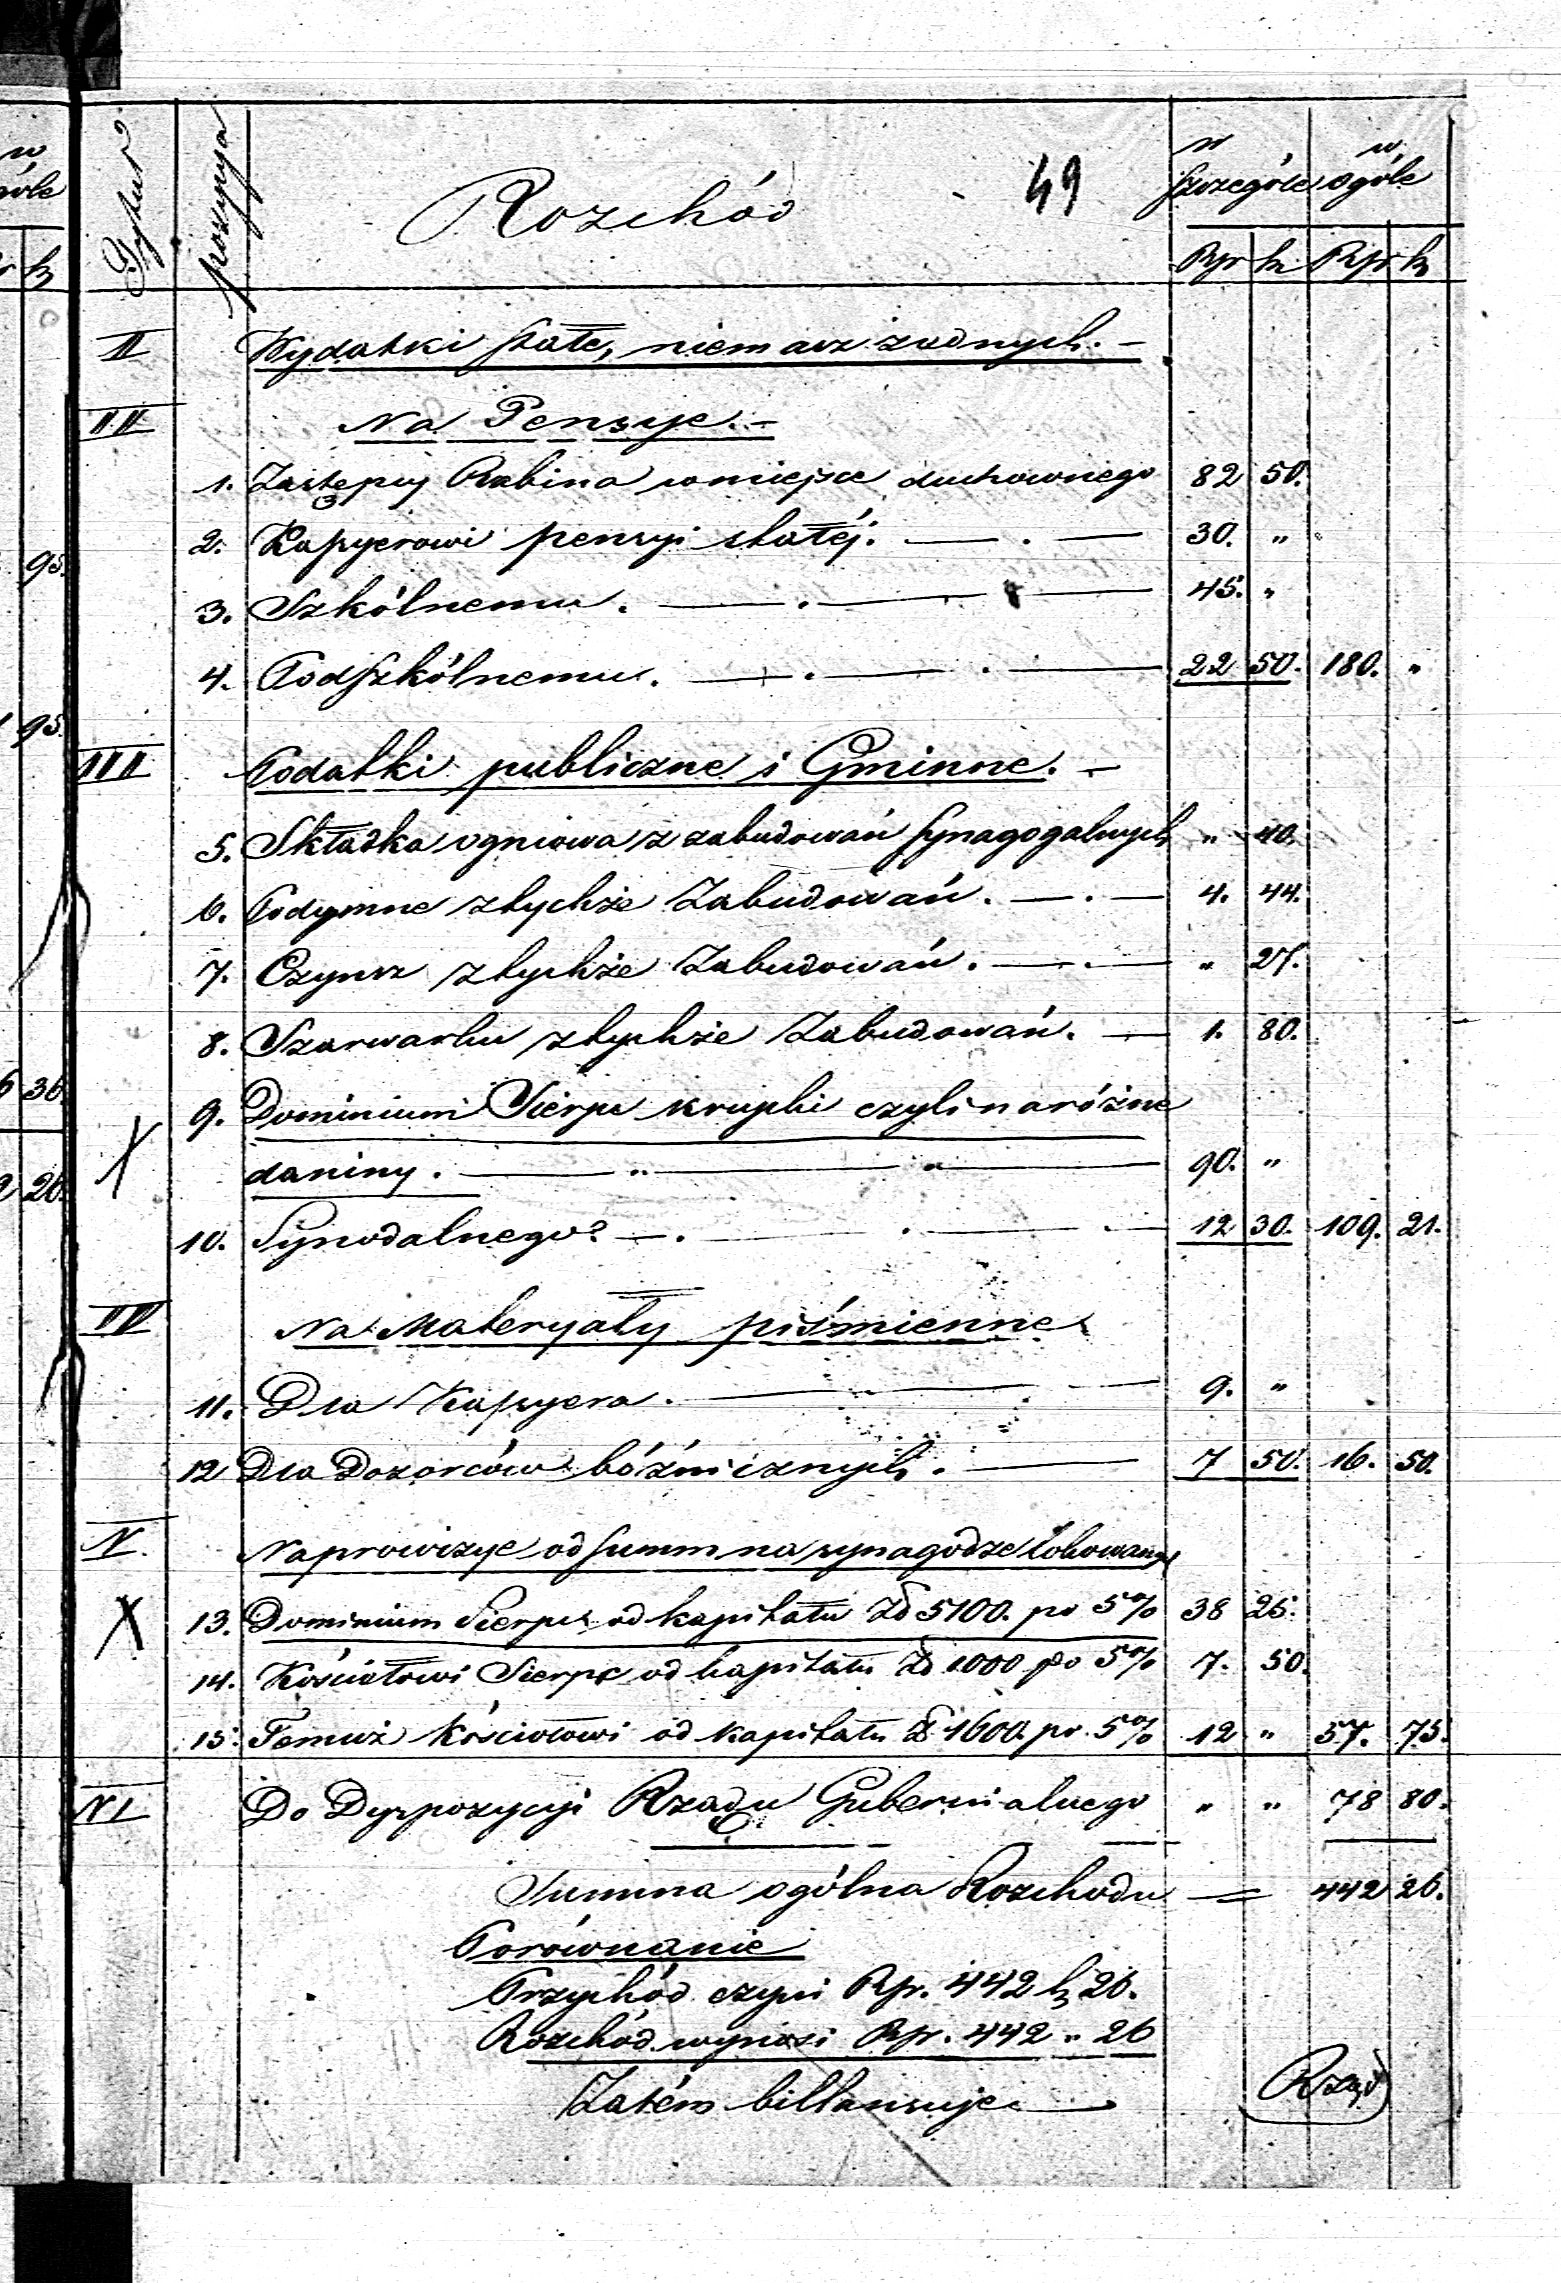 49
Tytuł pozycya Rozchód w szczególe w ogóle
Rsr k Rsr k
II Wydatki stałe, niemasz żadnych. –
III Na Pensye. –
1. Zastępcy Rabina wmiejsce duchownego 82 50.
2. Kassyerowi pensyi stałéj. — . — 30. „
3. Szkólnemu. — . — 45. „
4. Podszkólnemu. — . — . — 22 50. 180. „
III Podatki publiczne i Gminne. –
5. Składka ogniowa z zabudowań synagogalnych „ 40.
6. Podymne ztychże Zabudowań. — . — 4. 44.
7. Czynsz ztychże Zabudowań. — . — „ 27.
8. Szarwarku ztychże Zabudowań. — 1. 80.
9. Dominium Sierpc krupki czyli naróżne
daniny. — „ — „ — 90. „
10. Synodalnego? — . — . — 12 30. 109. 21.
IV Na Materyały piśmienne
11. Dla Kassyera. — 9. „
12 Dla Dozorców bóźnicznych. — 7 50. 16. 50.
V. Na prowizye od summ na synagodze lokowanych
13. Dominium Sierpc od kapitału Zł 5100. po 5% 38 25.
14. Kościołowi Sierpc od kapitału Zł 1000 po 5% 7. 50.
15. Temuż kościołowi od kapitału Zł 1600. po 5% 12 „ 57. 75.
VI Do Dyspozycyi Rządu Gubernialnego „ „ 78 80.
Summa ogólna Rozchodu = 442 26.
Porównanie
Przychód czyni Rsr. 442 k 26.
Rozchód wynosi Rsr. 442 „ 26
Zatém billansuje —
Rząd